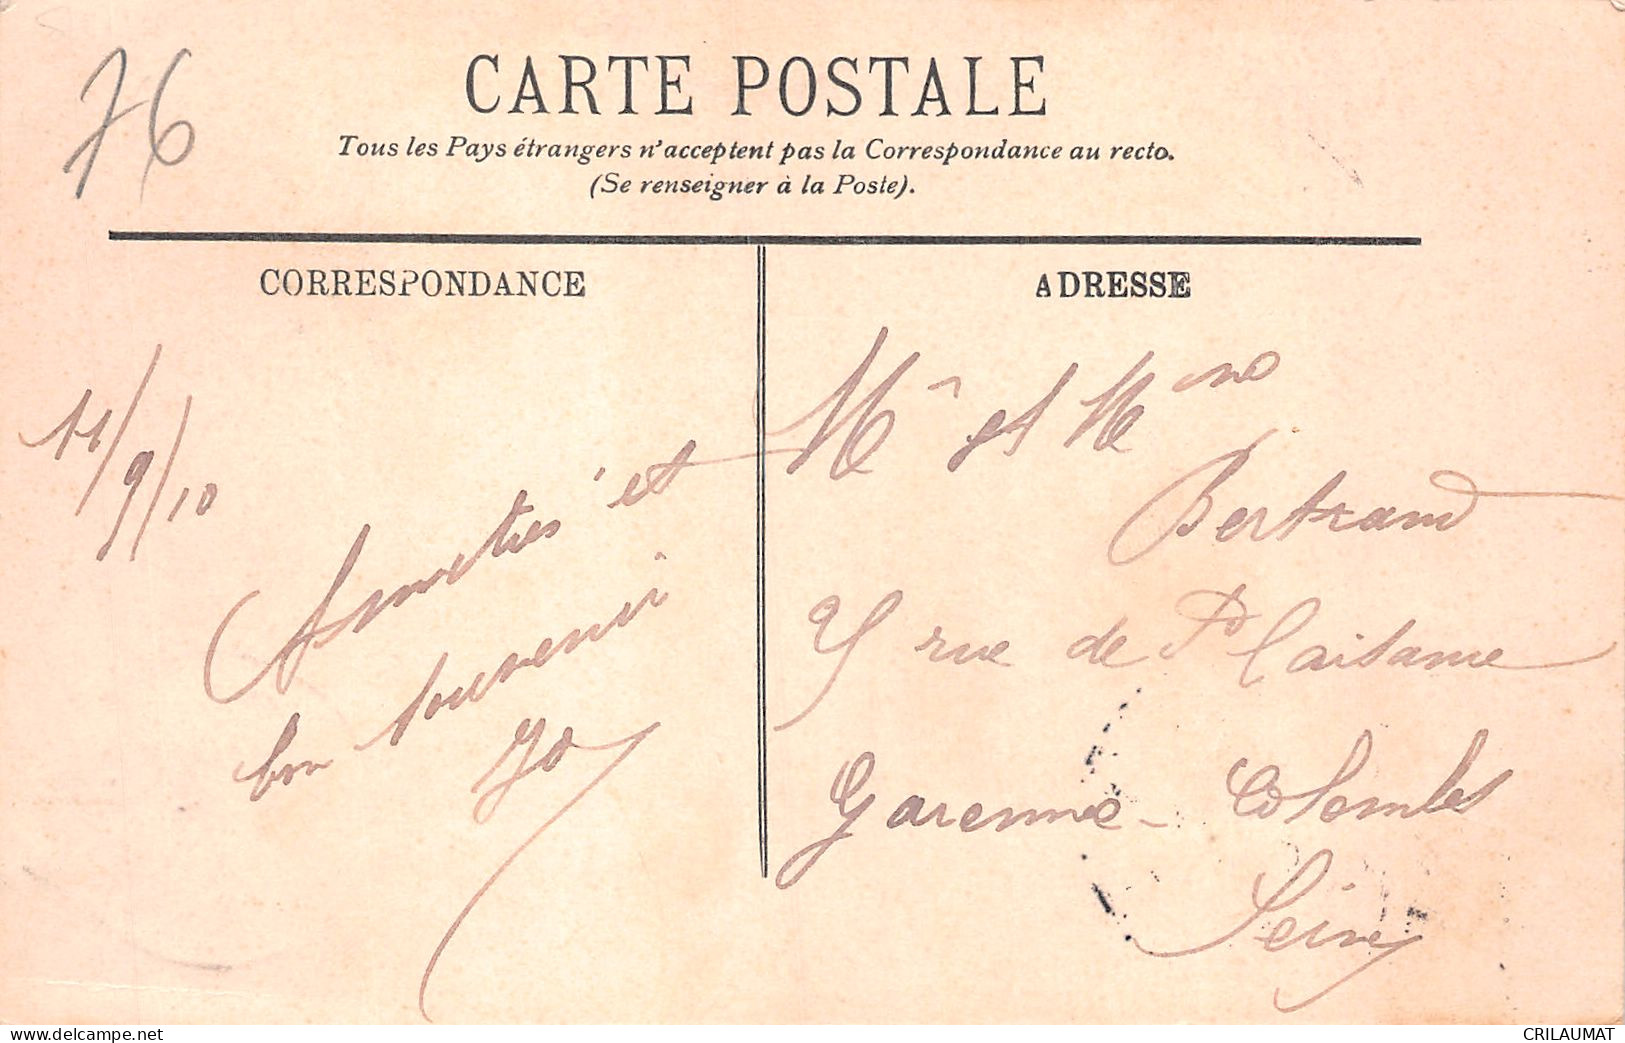 76
CARTE POSTALE
Tous les Pays étrangers n'acceptent pas la Correspondance au recto.
(Se renseigner à la Poste).
CORRESPONDANCE
ADRESSE
11/9/10
Amitiés et
bon souvenir
Mr et Mme
Bertrand
9 rue de Plaisance
Garenne-Colombes
Seine
www.delcampe.net
CRILAUMAT